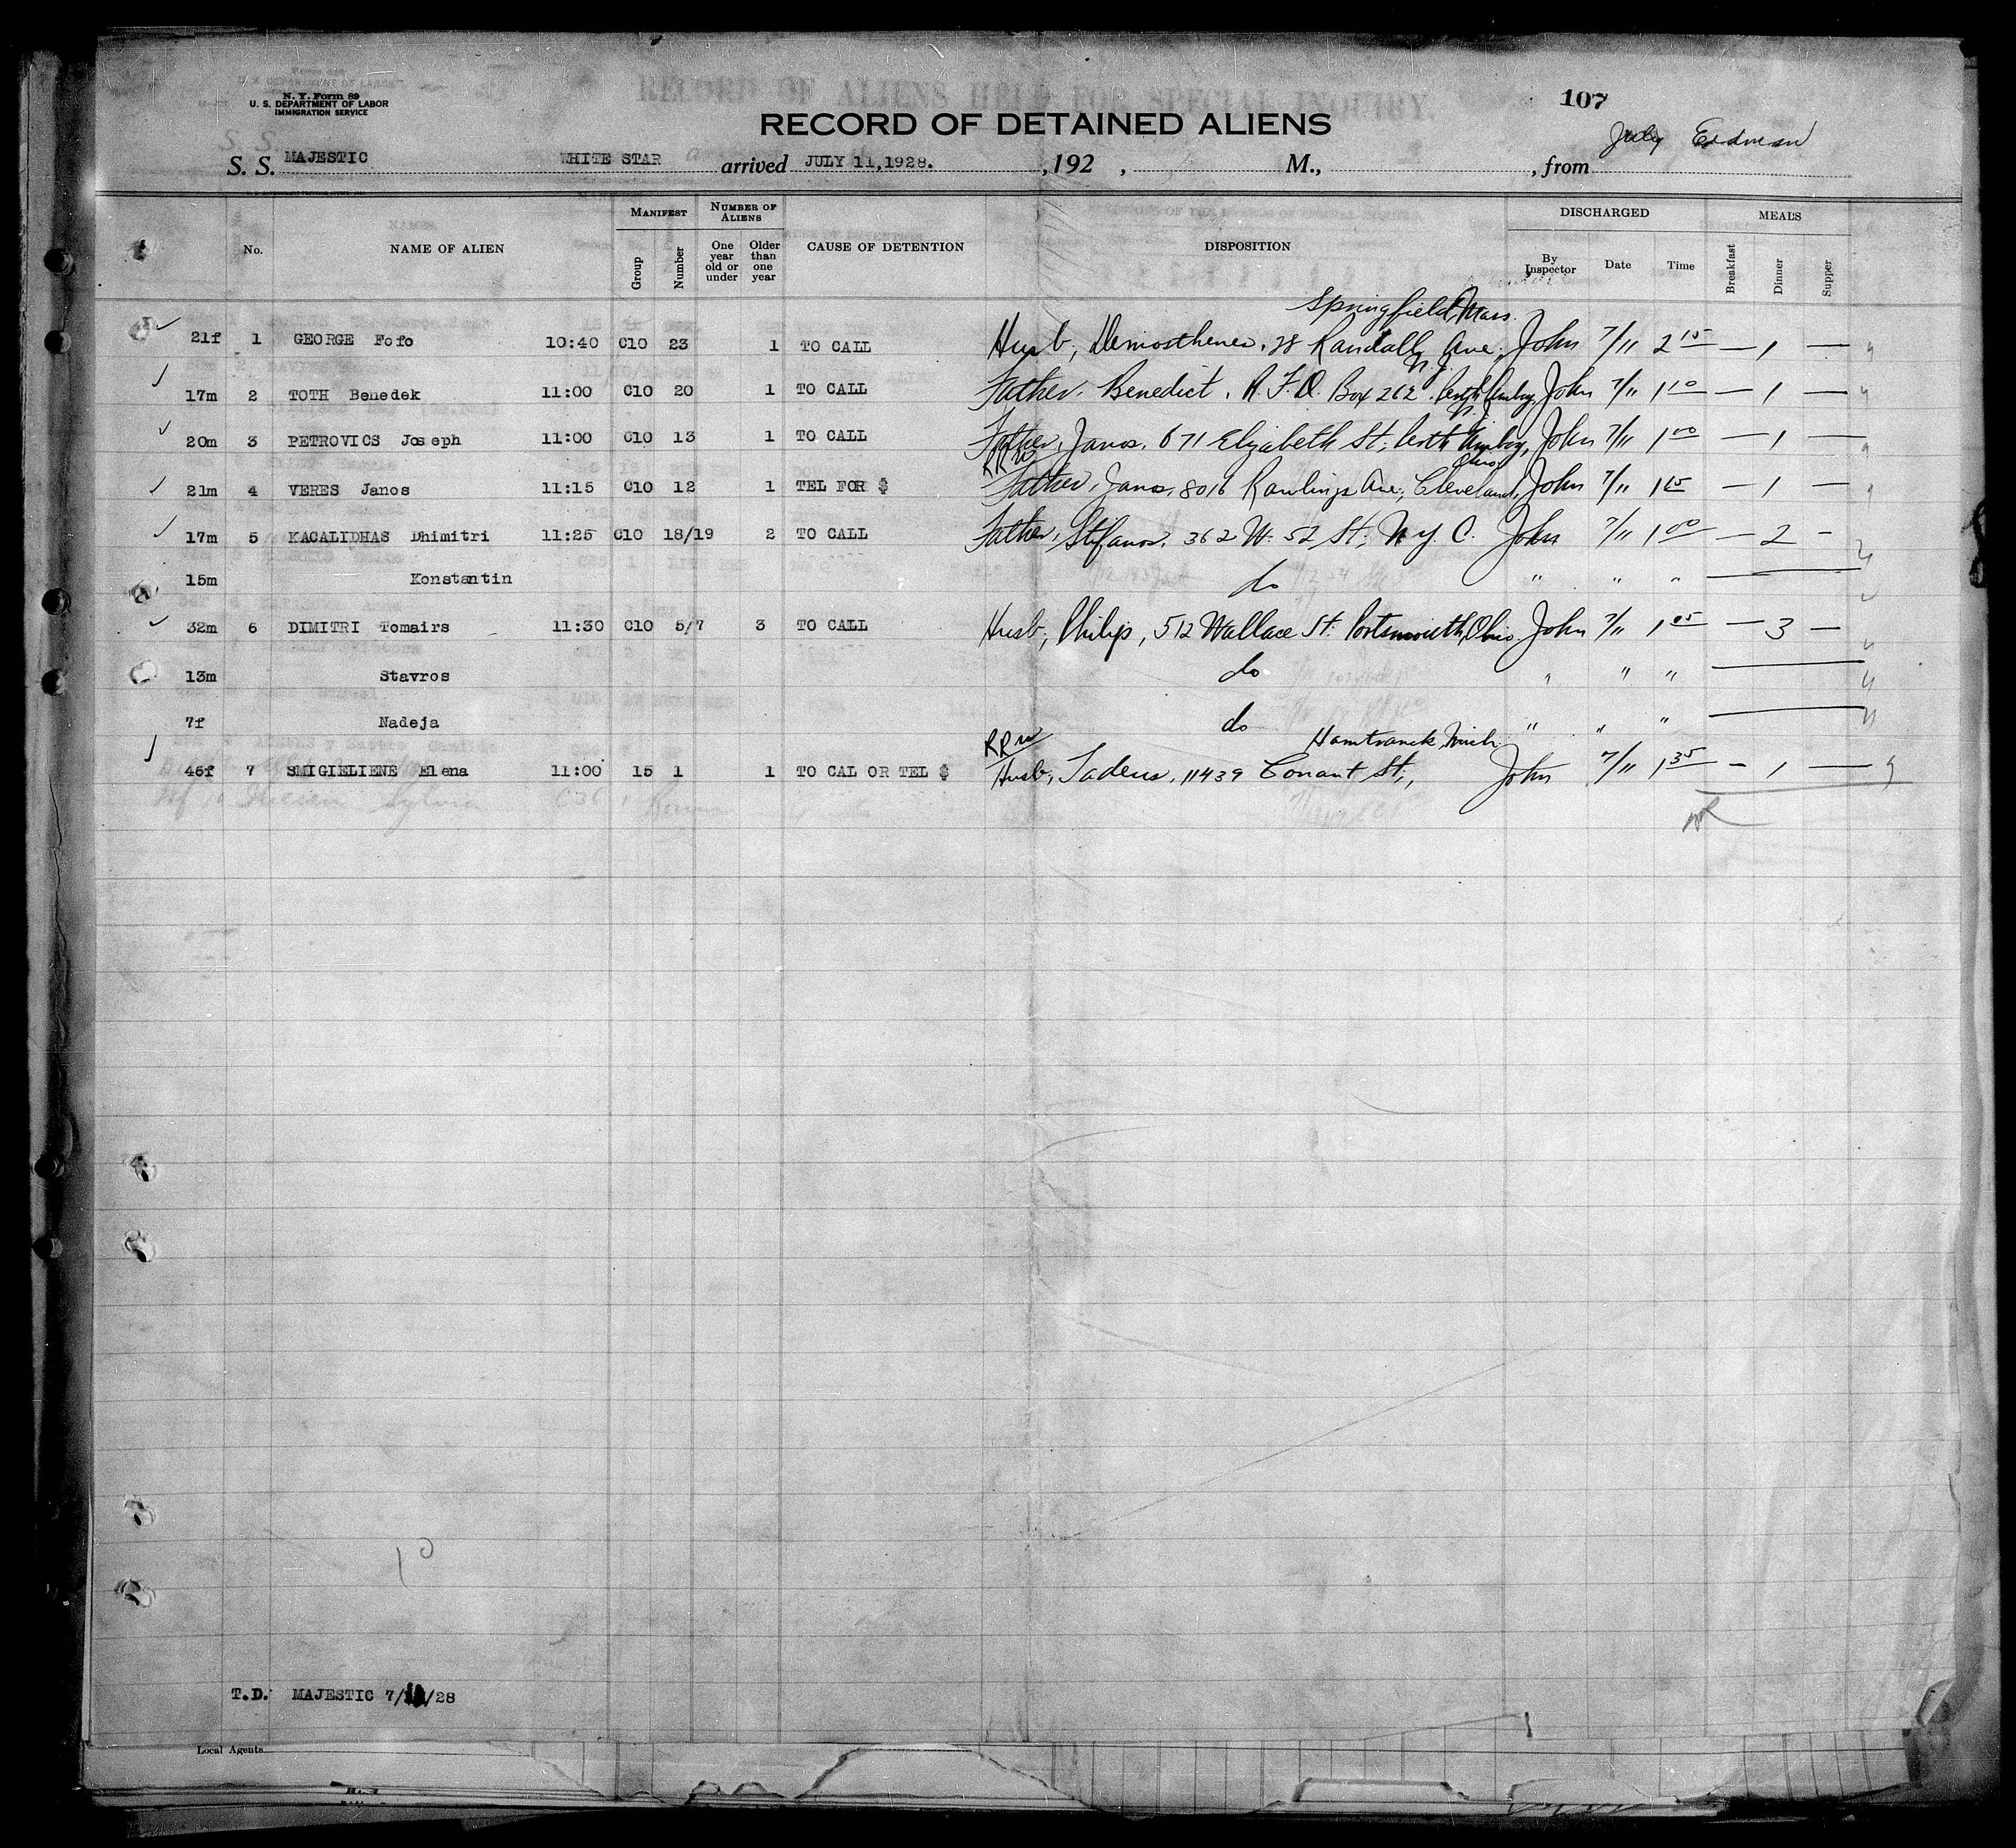 N. Y. Form 89
U. S. DEPARTMENT OF LABOR
IMMIGRATION SERVICE
107
RECORD OF DETAINED ALIENS
S. S. MAJESTIC WHITE STAR arrived JULY 11,1928. , 192 , M., , from
No. NAME OF ALIEN MANIFEST Group Number NUMBER OF ALIENS One year old or under Older than one year CAUSE OF DETENTION DISPOSITION DISCHARGED By Inspector Date Time MEALS Breakfast Dinner Supper
Springfield, Mass.
21f 1 GEORGE Fofo 10:40 C10 23 1 TO CALL Husb, Demosthenes, 28 Randall Ave, John 7/11 2 15 — 1 —
N.J.
17m 2 TOTH Benedek 11:00 C10 20 1 TO CALL Father, Benedict, R.F.D. Box 262 Perth Amboy, John 7/11 1 10 — 1 —
N.J.
20m 3 PETROVICS Joseph 11:00 C10 13 1 TO CALL Father, Janos, 671 Elizabeth St; Perth Amboy, John 7/11 1 00 — 1 —
RRW Ohio
21m 4 VERES Janos 11:15 C10 12 1 TEL FOR $ Father, Janos, 8016 Rawlings Ave, Cleveland, John 7/11 1 15 — 1 —
17m 5 KACALIDHAS Dhimitri 11:25 C10 18/19 2 TO CALL Father, Stefanos, 362 W. 52 St; N.Y.C. John 7/11 1 00 — 2 —
15m Konstantin do " " "
32m 6 DIMITRI Tomairs 11:30 C10 5/7 3 TO CALL Husb, Philip, 512 Wallace St. Portsmouth, Ohio. John 7/11 1 05 — 3 —
13m Stavros do " " "
7f Nadeja do " " "
RRW Hamtramck, Mich.
45f 7 SMIGIELIENE Elena 11:00 15 1 1 TO CAL OR TEL $ Husb, Tadeus, 11439 Conant St; John 7/11 1 35 — 1 —
T.D. MAJESTIC 7/11/28
Local Agents